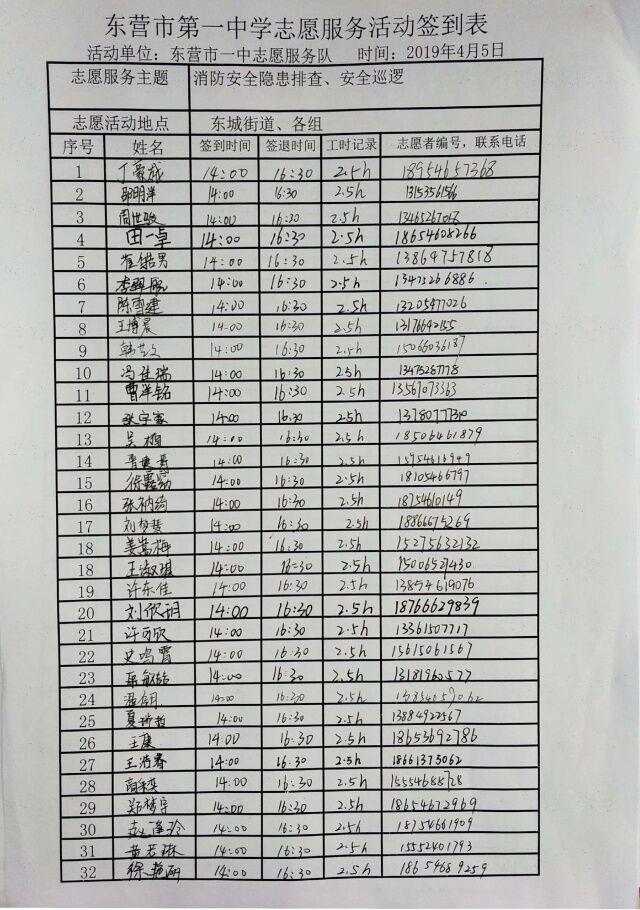 东营市第一中学志愿服务活动签到表
活动单位：东营市一中志愿服务队 时间：2019年4月5日
志愿服务主题 消防安全隐患排查、安全巡逻
志愿活动地点 东城街道、各组
序号 姓名 签到时间 签退时间 工时记录 志愿者编号，联系电话
1 14:00 16:30 2.5h 18954657368
2 14:00 16:30 2.5h
3 周世骏 14:00 16:30 2.5h
4 田一卓 14:00 16:30 2.5h 18654608266
5 崔皓男 14:00 16:30 2.5h 13864757818
6 14:00 16:30 2.5h 13475266886
7 陈雪建 14:00 16:30 2.5h 13205477026
8 王博晨 14:00 16:30 2.5h 13176692155
9 韩艺文 14:00 16:30 2.5h 15066036187
10 冯佳瑞 14:00 16:30 2.5h 13475287778
11 曹洋铭 14:00 16:30 2.5h 13561073363
12 张宇豪 14:00 16:30 2.5h
13 吴桐 14:00 16:30 2.5h 18506461879
14 14:00 16:30 2.5h 15954616949
15 14:00 16:30 2.5h 18105466797
16 14:00 16:30 2.5h 18754610149
17 刘梦慧 14:00 16:30 2.5h 18866675269
18 姜嵩梅 14:00 16:30 2.5h 15275632132
18 王淑琪 14:00 16:30 2.5h 15006527430
19 许东佳 14:00 16:30 2.5h 13854619076
20 刘欣玥 14:00 16:30 2.5h 18766629839
21 许可欣 14:00 16:30 2.5h 13361507717
22 史鸣霄 14:00 16:30 2.5h 15615061567
23 14:00 16:30 2.5h 13181960577
24 14:00 16:30 2.5h
25 夏瑞哲 14:00 16:30 2.5h 13884922567
26 王康 14:00 16:30 2.5h 18653692786
27 王浩春 14:00 16:30 2.5h 18661373062
28 14:00 16:30 2.5h 15554688728
29 郑梦宇 14:00 16:30 2.5h 18654672969
30 14:00 16:30 2.5h 18754661909
31 黄若琳 14:00 16:30 2.5h 15552401793
32 徐艳丽 14:00 16:30 2.5h 18654689259